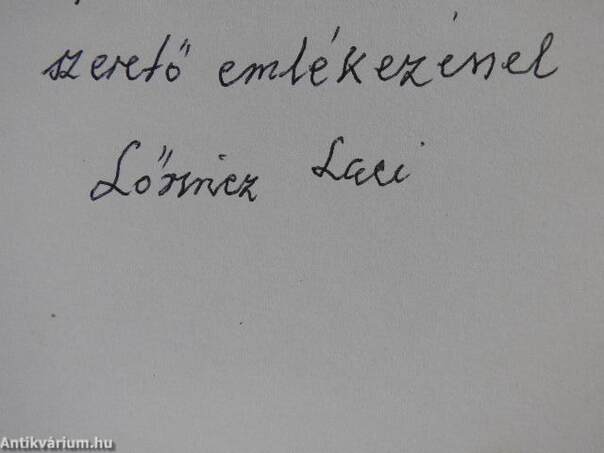 szerető emlékezéssel
Lőrincz Laci
Antikvárium.hu